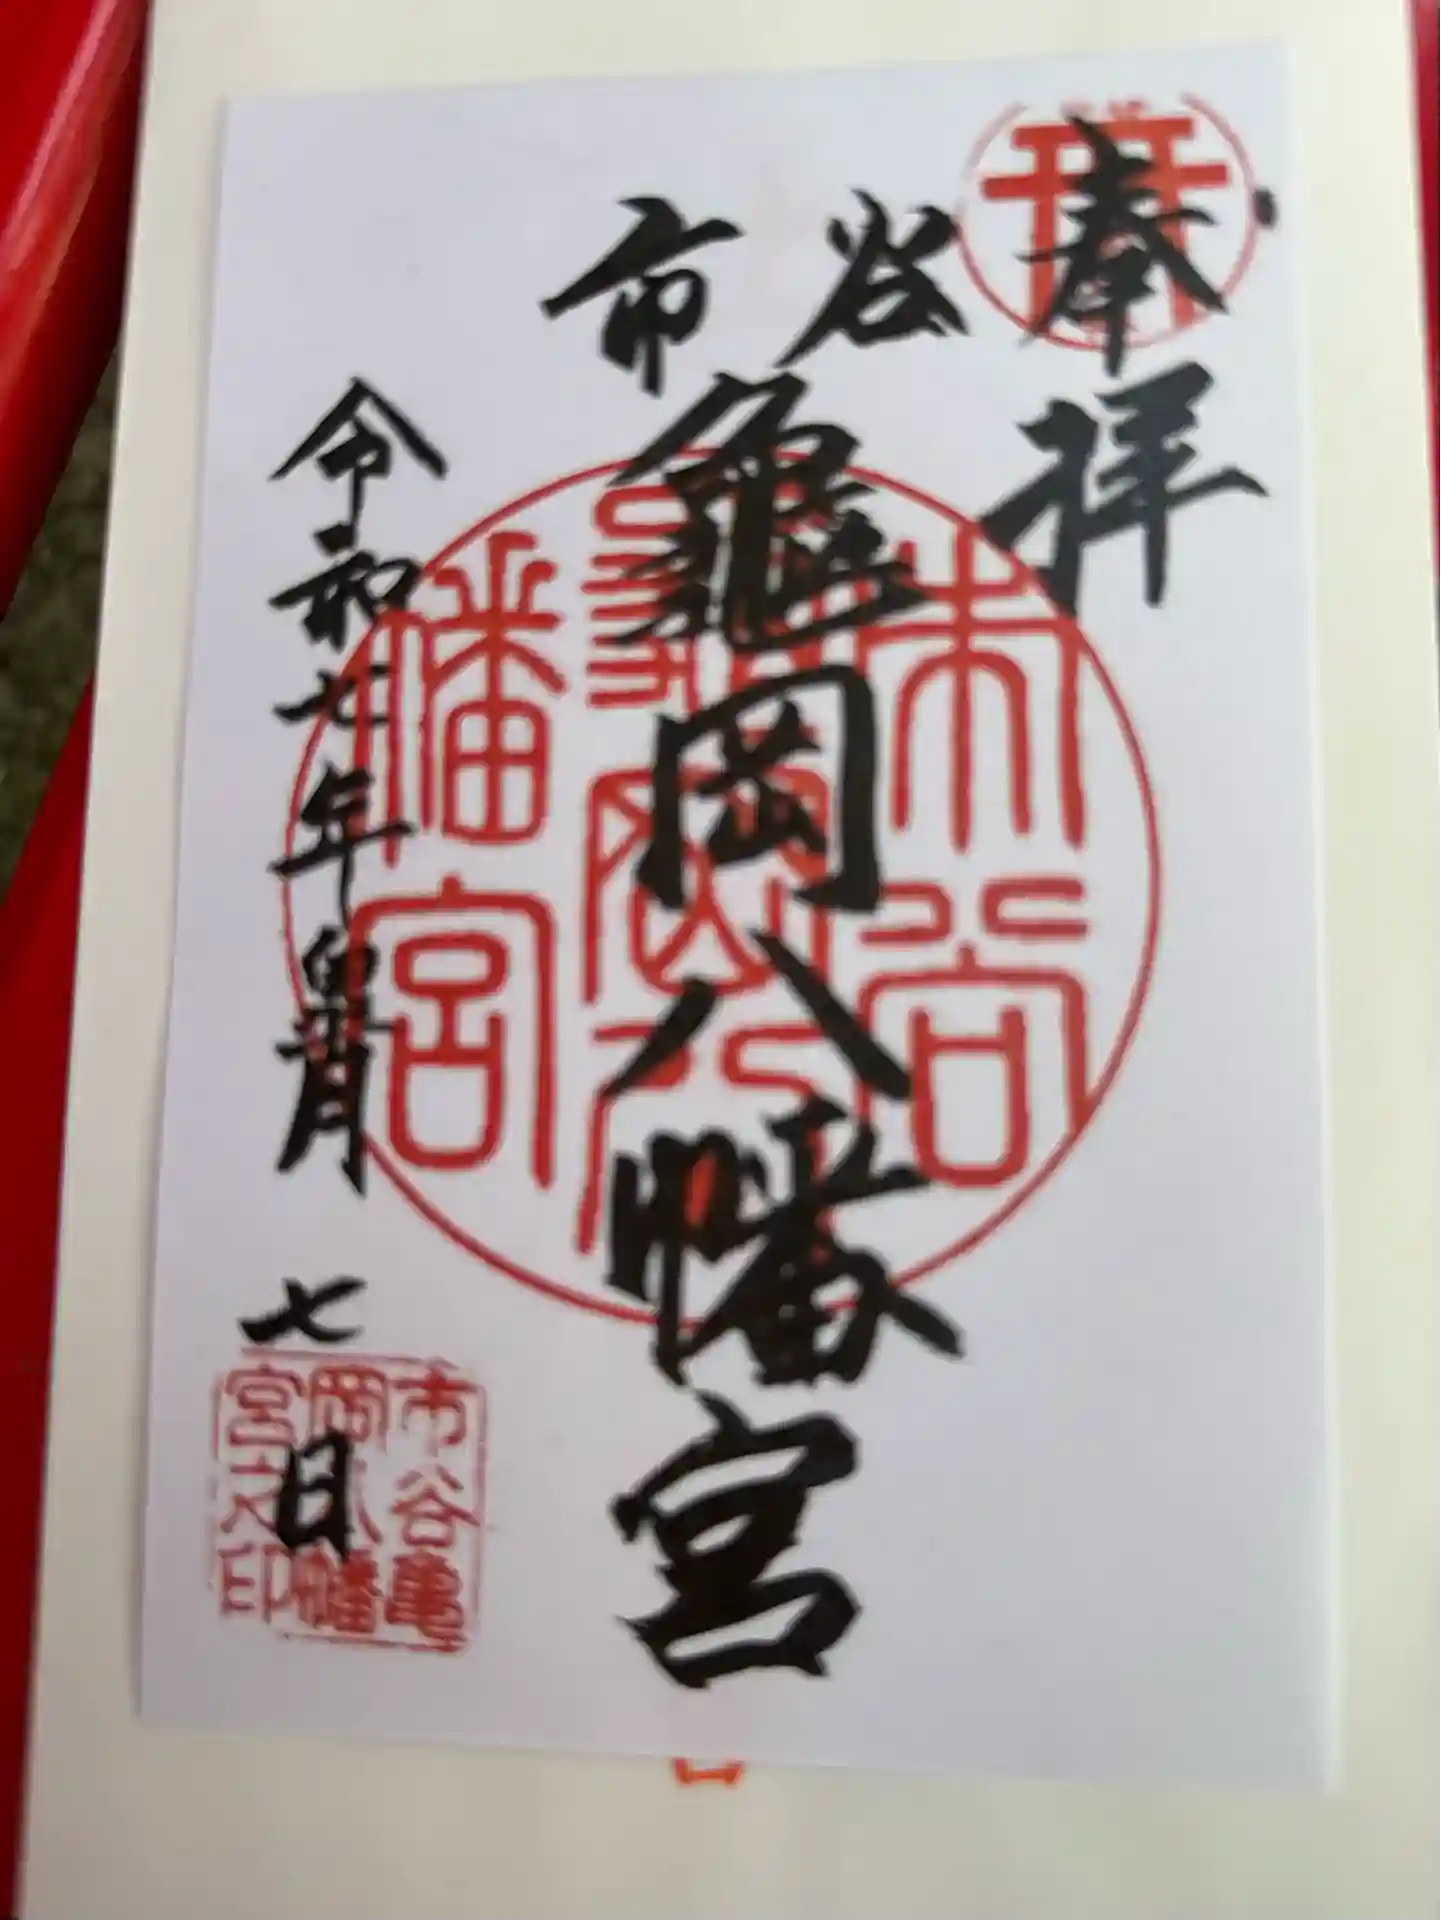 奉拝
市谷
龜岡八幡宮
令和七年皐月七日
市谷
龜岡八
幡宮
市谷亀
岡八幡
宮之印